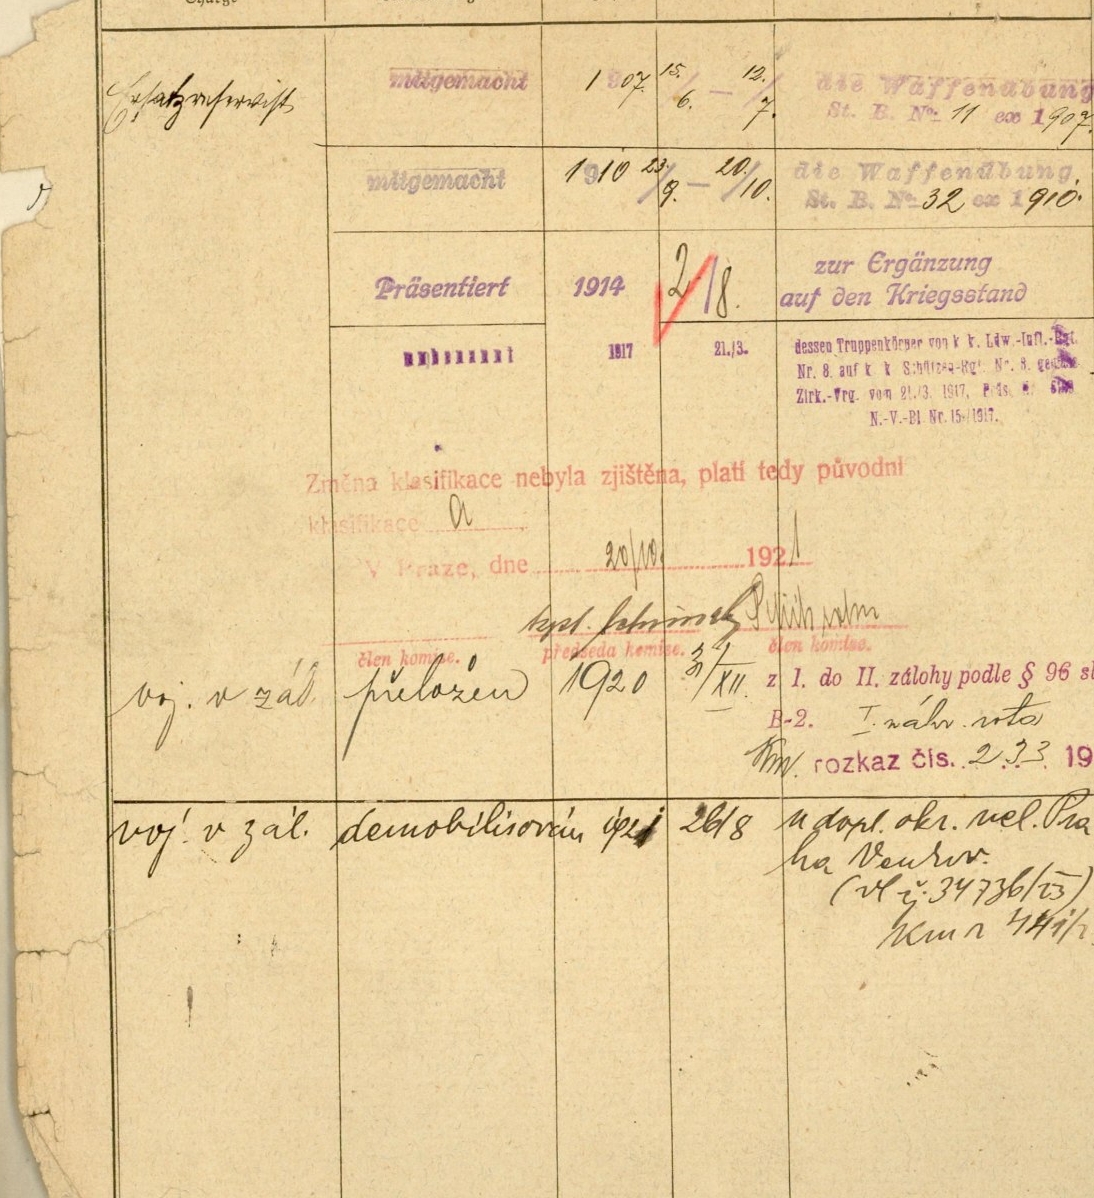 Charge
Ersatzreservist mitgemacht 1907 15./6. – 12./7. die Waffenübung
St. B. No 11 ex 1907.
mitgemacht 1910 23./9. – 20./10. die Waffenübung
St. B. No 32 ex 1910.
Präsentiert 1914 2/8. zur Ergänzung
auf den Kriegsstand
1917 21./3. dessen Truppenkörper von k. k. Ldw.-Inft.-Rgt.
Nr. 8 auf k. k. Schützen-Rgt. Nr. 8.
Zirk.-Vrg. vom 21./3. 1917, Präs.
N.-V.-Bl. Nr. 15/1917.
Změna klasifikace nebyla zjištěna, platí tedy původní
klasifikace A
V Praze, dne 20/10. 1921
člen komise. předseda komise. člen komise.
voj. v zál. přeložen 1920 31/XII. z I. do II. zálohy podle § 96
B-2. I. náhr. rota
Km. rozkaz čís. 233 19
voj. v zál. demobilisován 1921 26/8 u dopl. okr. vel. Pra
ha Venkov.